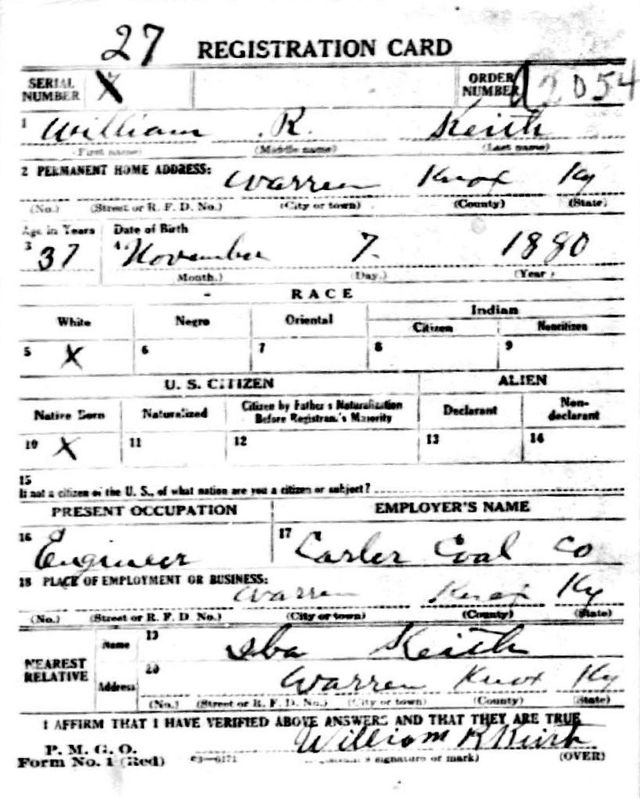 27 REGISTRATION CARD
SERIAL NUMBER ORDER NUMBER 2054
1 William R. Keith
(First name) (Middle name) (Last name)
2 PERMANENT HOME ADDRESS: Warren Knox Ky
(No.) (Street or R. F. D. No.) (City or town) (County) (State)
Age in Years Date of Birth
3 37 4 November 7. 1880
(Month.) (Day.) (Year)
RACE
White Negro Oriental Indian
Citizen Noncitizen
5 X 6 7 8 9
U. S. CITIZEN ALIEN
Native Born Naturalized Citizen by Father's Naturalization Before Registrant's Majority Declarant Non-declarant
10 X 11 12 13 14
15
If not a citizen of the U. S., of what nation are you a citizen or subject?
PRESENT OCCUPATION EMPLOYER'S NAME
16 Engineer 17 Coal Co
18 PLACE OF EMPLOYMENT OR BUSINESS: Warren Knox Ky
(No.) (Street or R. F. D. No.) (City or town) (County) (State)
NEAREST RELATIVE
Name 19 Keith
Address 20 Warren Knox Ky
(No.) (Street or R. F. D. No.) (City or town) (County) (State)
I AFFIRM THAT I HAVE VERIFIED ABOVE ANSWERS AND THAT THEY ARE TRUE
P. M. G. O. William R Keith
Form No. 1 (Red) 03—6171 signature or mark) (OVER)